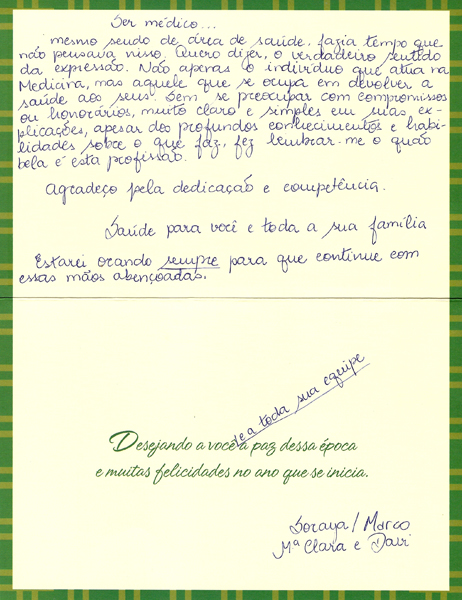 Ser médico...
mesmo sendo de área de saúde, fazia tempo que
não pensava nisso. Quero dizer, o verdadeiro sentido
da expressão. Não apenas o indivíduo que atua na
Medicina, mas aquele que se ocupa em devolver a
saúde aos seus. Sem se preocupar com compromissos
ou honorários, muito claro e simples em suas ex-
plicações, apesar dos profundos conhecimentos e habi-
lidades sobre o que faz, fez lembrar-me o quão
bela é esta profissão.
Agradeço pela dedicação e competência.
Saúde para você e toda a sua família
Estarei orando sempre para que continue com
essas mãos abençoadas.
e a toda sua equipe
Desejando a você a paz dessa época
e muitas felicidades no ano que se inicia.
Soraya / Marco
Mª Clara e Davi